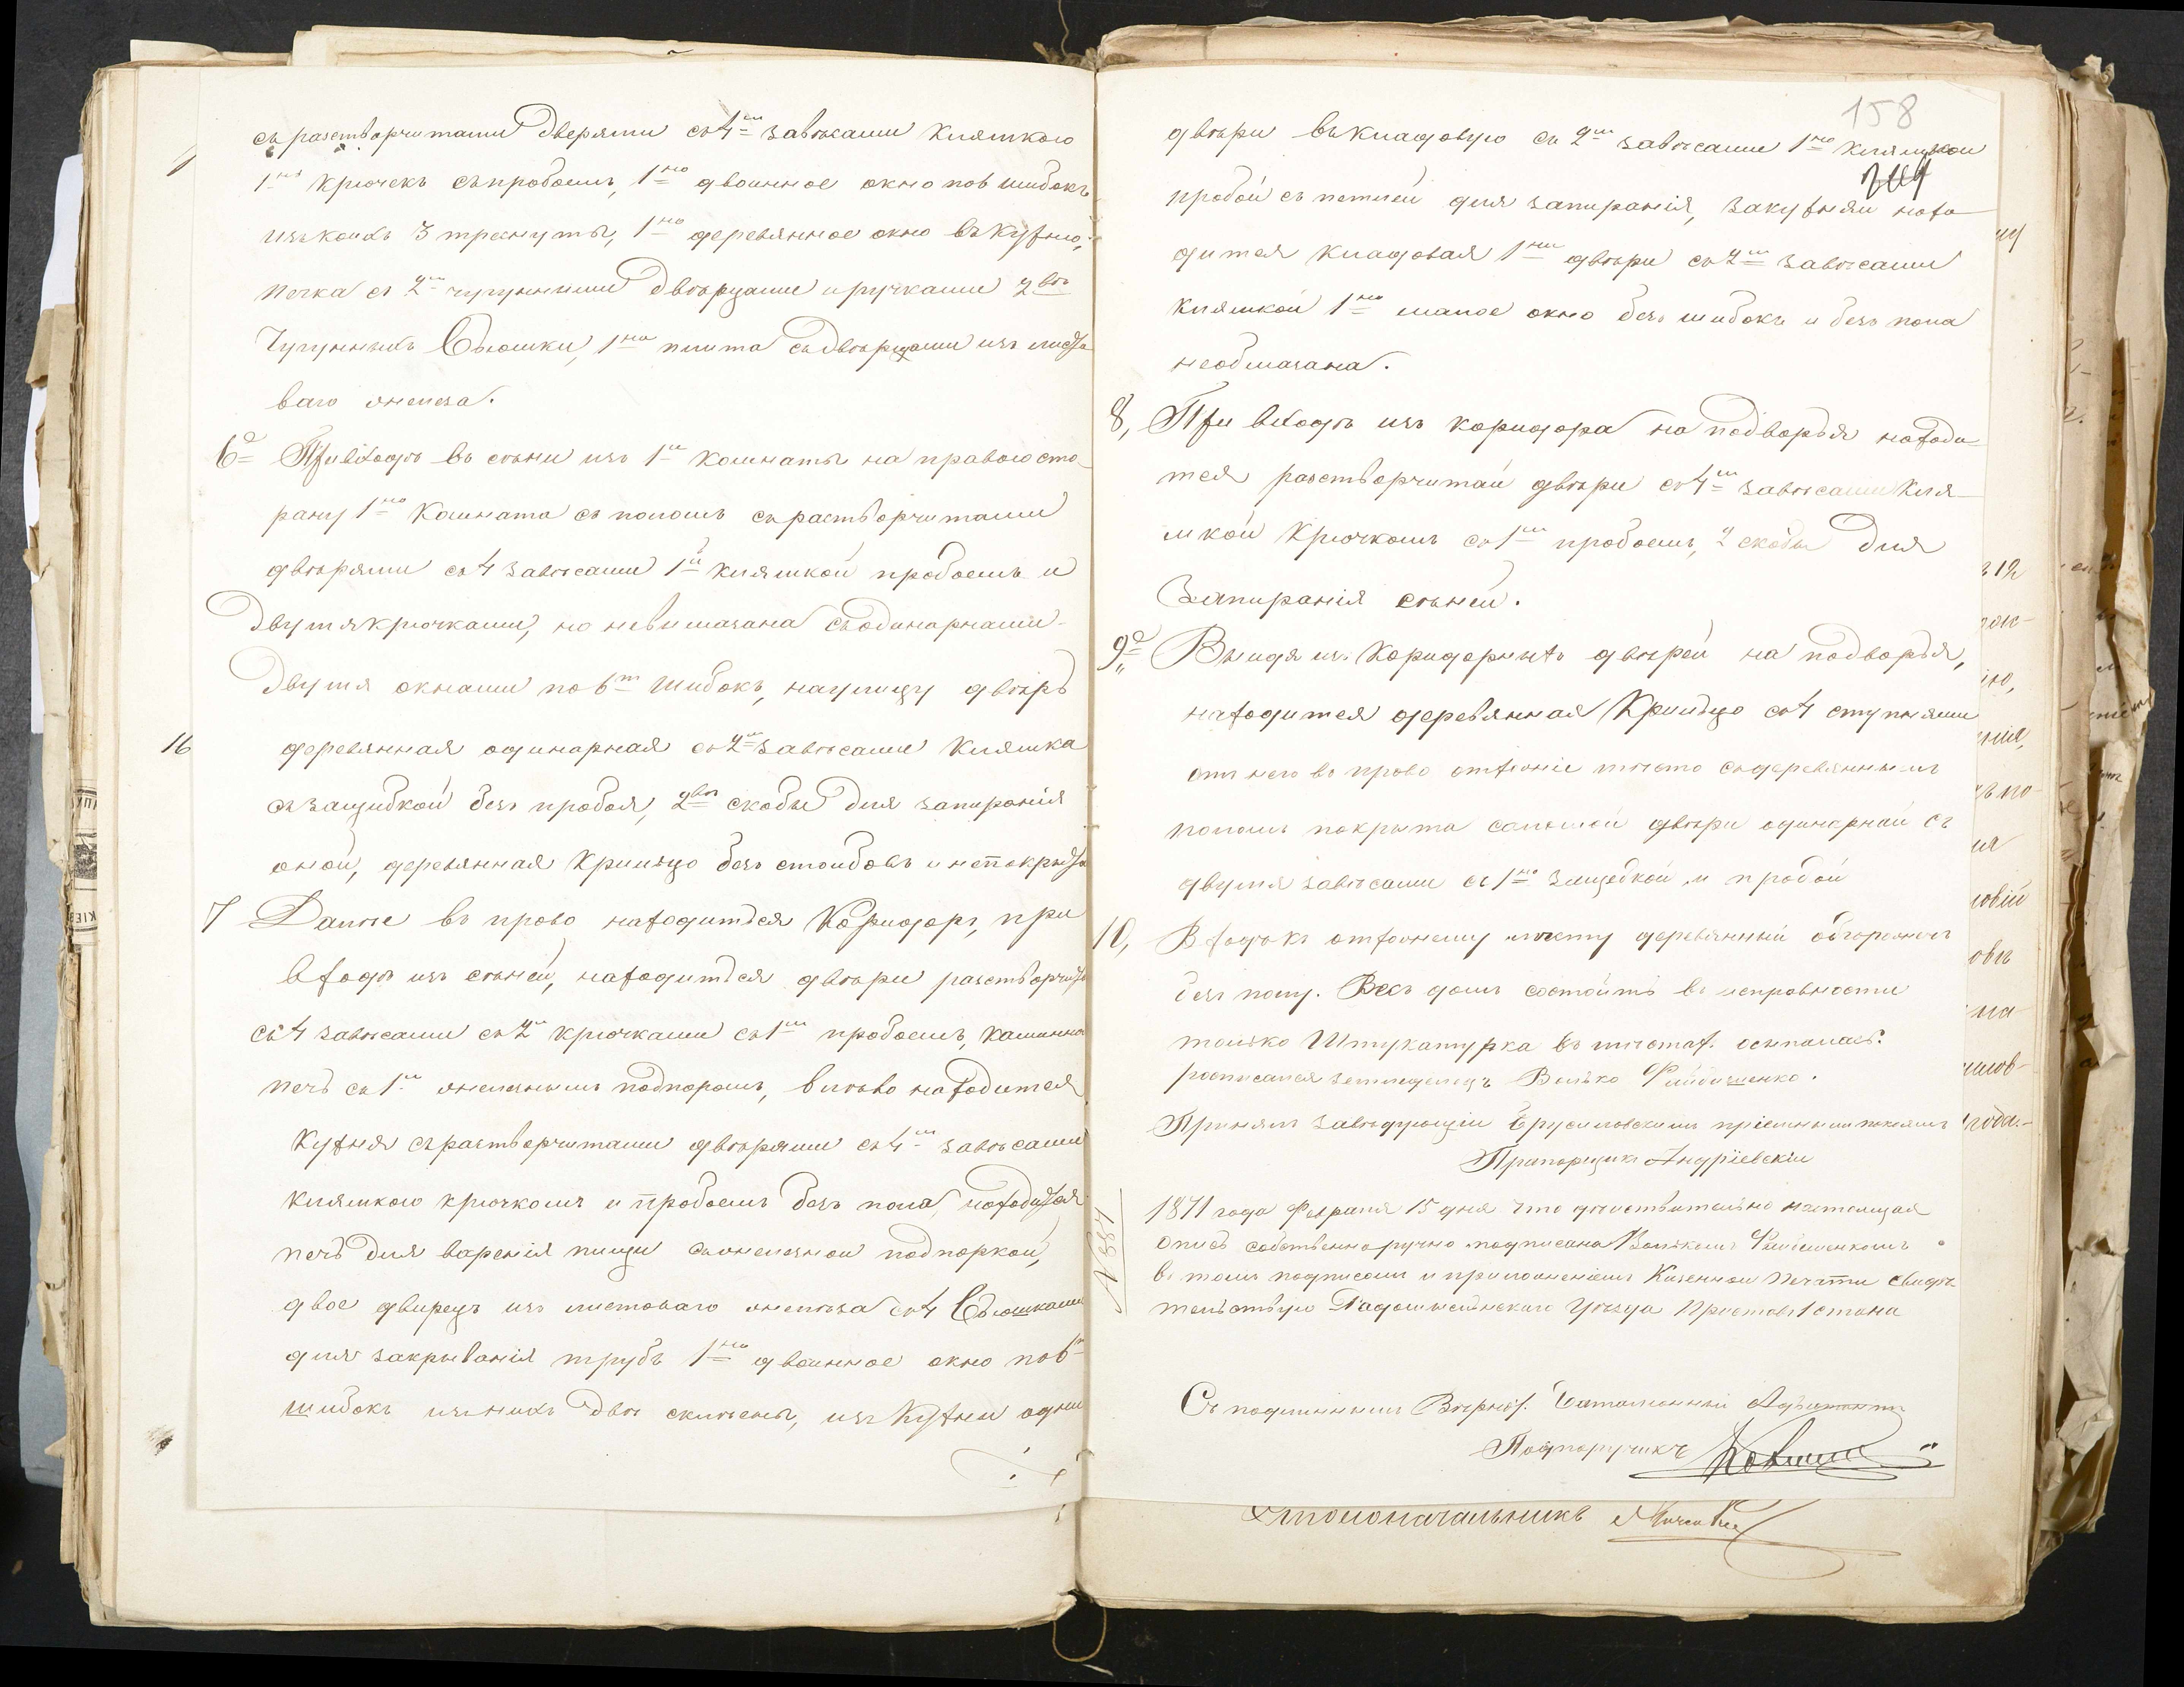 съ растворчитыми дверями съ 4ми завѣсами кляткою
1нъ крючекъ съ пробоемъ, 1но двоинное окно по 6 шибокъ
изъ коихъ 3 треснуты, 1но деревянное окно въ кухню,
печка съ 2мя чугунными дверцами и ручками 2вѣ
Чугунныхъ Вьюшки, 1на плита съ дверцами изъ листо
ваго железа.
6е При входѣ въ сѣни изъ 1й комнаты на правою сто
рану 1на Комната съ поломъ съ растворчитыми
двѣрями съ 4 завѣсами 1й кляткой пробоемъ и
двумя крючками, но невимазана съ одинарнами
двумя окнами по 6ти шибокъ, на улицу двѣрь
16
деревянная одинарная съ 2мя завѣсами клятка
съ защибкой безъ пробоя, 2вѣ скобы для запиранія
оной, деревянная крильцо безъ столбовъ и непокрыта
7 Далѣе въ право находиться Коридоръ, при
входѣ изъ сѣней, находиться двѣри растворчиты
съ 4 завѣсами съ 2мя крючками съ 1мъ пробоемъ, каминна
печь съ 1мъ желѣзнымъ подпоромъ, влѣво находится
кухня съ растворчитыми двѣрями съ 4ми завѣсами
кляткою крючкомъ и пробоемъ безъ пола, находится
печь для варенія пищи съ желѣзной подпоркой,
двое двирецъ изъ листоваго желѣза съ 4 Вьюшками
для закрыванія трубъ 1но двоинное окно по 6
шибокъ изъ нихъ двѣ склѣены, изъ Кухни одни
158
двѣри въ кладовую съ 2мя завѣсами 1но кляткой
пробой съ петлей для запиранія, за кухней нахо
дится кладовая 1ни двѣри съ 2мя завѣсами
кляткой 1но малое окно безъ шибокъ и безъ пола
необмазана.
8, При входѣ изъ коридора на подворья находи
тся растворчитаи двѣри съ 4ми завѣсами кля
ткой крючкомъ съ 1мъ пробоемъ, 2 скобы для
Запиранія сѣней.
9е Выйдя изъ Коридорныхъ двѣрей на подворья,
находится деревянная Крильцо съ 4 ступнями
отъ него въ право отхожіе мѣсто съ деревяннымъ
поломъ покрыта соломой двѣри одинарнаи съ
двумя завѣсами съ 1но защебкой и пробой
10, Входъ къ отхожему мѣсту деревянный обгорожен
безъ полу. Весь домъ состоитъ въ исправности
только Штукатурка въ мѣстах. осыпалась.
росписался землѣделецъ Волько
Принялъ завѣдующій Брусиловскимъ пріемнымъ покоемъ
Прапорщикъ Андріевскій
№ 884
1871 года Февраля 15 дня что дѣйствительно настоящая
Опись собственноручно подписана Волькомъ
въ томъ подписомъ и приложеніемъ Казенной печати свидѣ
тельствую Радомысльскаго Уѣзда Приставъ 1 стана
Съ подлиннымъ Вѣрно. Баталіонный Адъютантъ
Подпоручикъ
Столоначальникъ